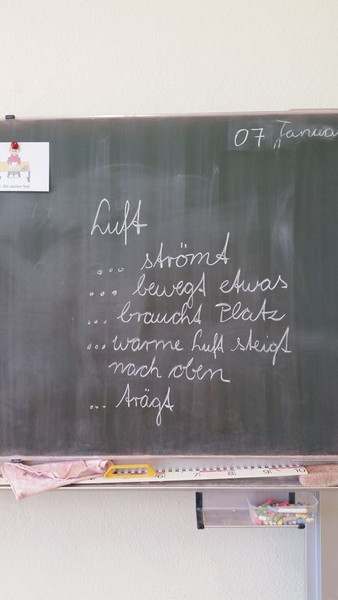 07 Januar
Luft
... strömt
... bewegt etwas
... braucht Platz
... warme Luft steigt
nach oben
... trägt